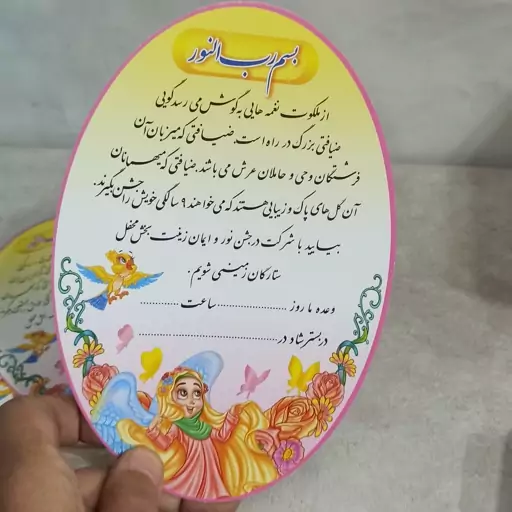 بسم رب النور
از ملکوت نغمه هایی به گوش می رسد گویی
ضیافتی بزرگ در راه است. ضیافتی که میزبان آن
فرشتگان وحی و حاملان عرش می باشند. ضیافتی که میهمانان
آن گل های پاک و زیبایی هستند که می خواهند ۹ سالگی خویش را جشن بگیرند.
بیایید با شرکت در جشن نور و ایمان زینت بخش محفل
ستارگان زمینی شویم.
وعده ما روز .................... ساعت ..........
در بستر شاد در ........................................